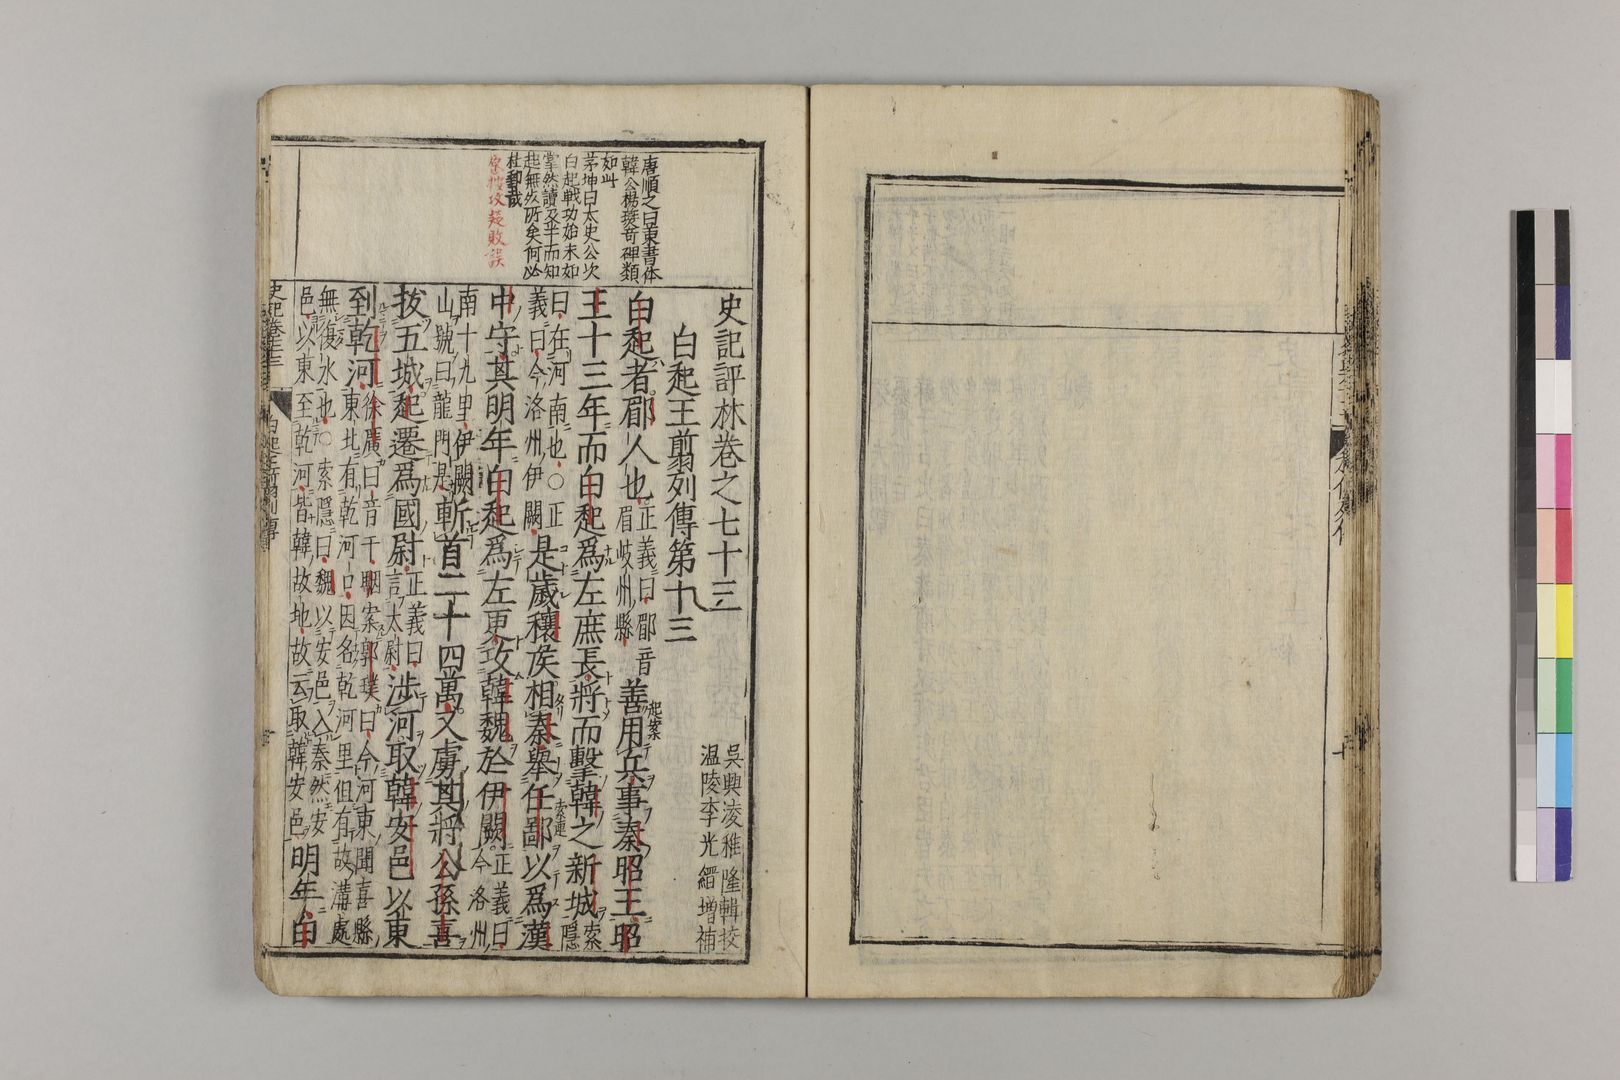 唐順之曰東書体
韓公楊㻛奇碑類
如此
茅坤曰太史公次
白起戰功始末如
掌然讀及半而知
起無死所矣何必
杜郵哉
史記評林卷之七十三
吳興凌稚隆輯挍
溫陵李光縉增補
白起王翦列傳第十三
白起者郿人也
正義曰郿音
眉岐州縣
善用兵事秦昭王昭
起案
王十三年而白起爲左庶長將而擊韓之新城
索隱
曰在河南也〇正
義曰今洛州伊闕
是歲穰矦相秦舉任鄙以爲漢
索連
中守其明年白起爲左更攻韓魏於伊闕
正義曰
今洛州
南十九里伊闕
山號曰龍門是
斬首二十四萬又虜其將公孫喜
拔五城起遷爲國尉
正義曰
言太尉
涉河取韓安邑以東
到乾河
徐廣曰音干駰案郭璞曰今河東聞喜縣
東北有乾河口因名乾河里但有故溝處
無復水也〇索隱曰魏以安邑入秦然安
邑以東至乾河皆韓故地故云取韓安邑
明年白
史記卷七十三
白起王翦列傳